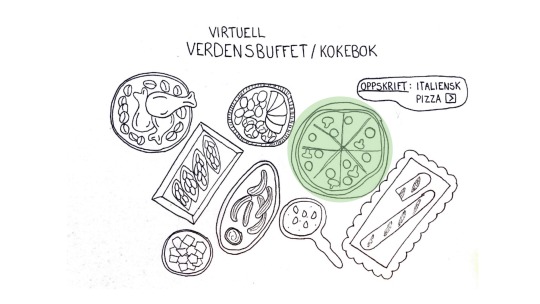 VIRTUELL
VERDENSBUFFET/KOKEBOK
OPPSKRIFT: ITALIENSK
PIZZA